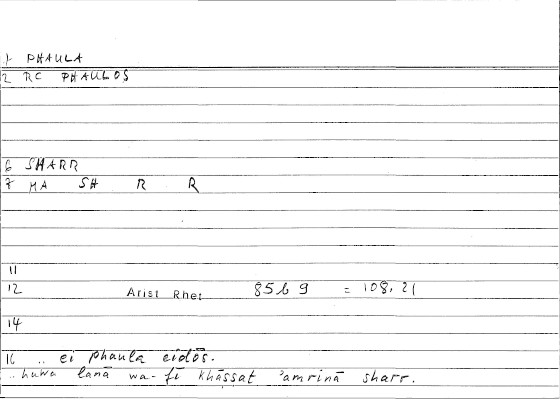 1 PHAULA
2 RC PHAULOS
6 SHARR
7 MA SH R R
11
12 Arist Rhet 85b9 = 108,21
14
16 .. ei phaula eidōs.
..huwa lanā wa-fī khāṣṣat ʾamrinā sharr.